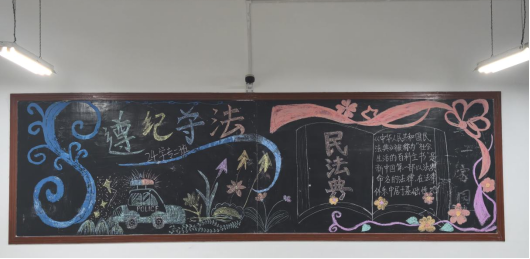 遵纪学法
POLICE
民法典
《中华人民共和国民
法典》被称为"社会
生活的百科全书",是
新中国第一部以法典
命名的法律,在法律
体系中居于基础性地